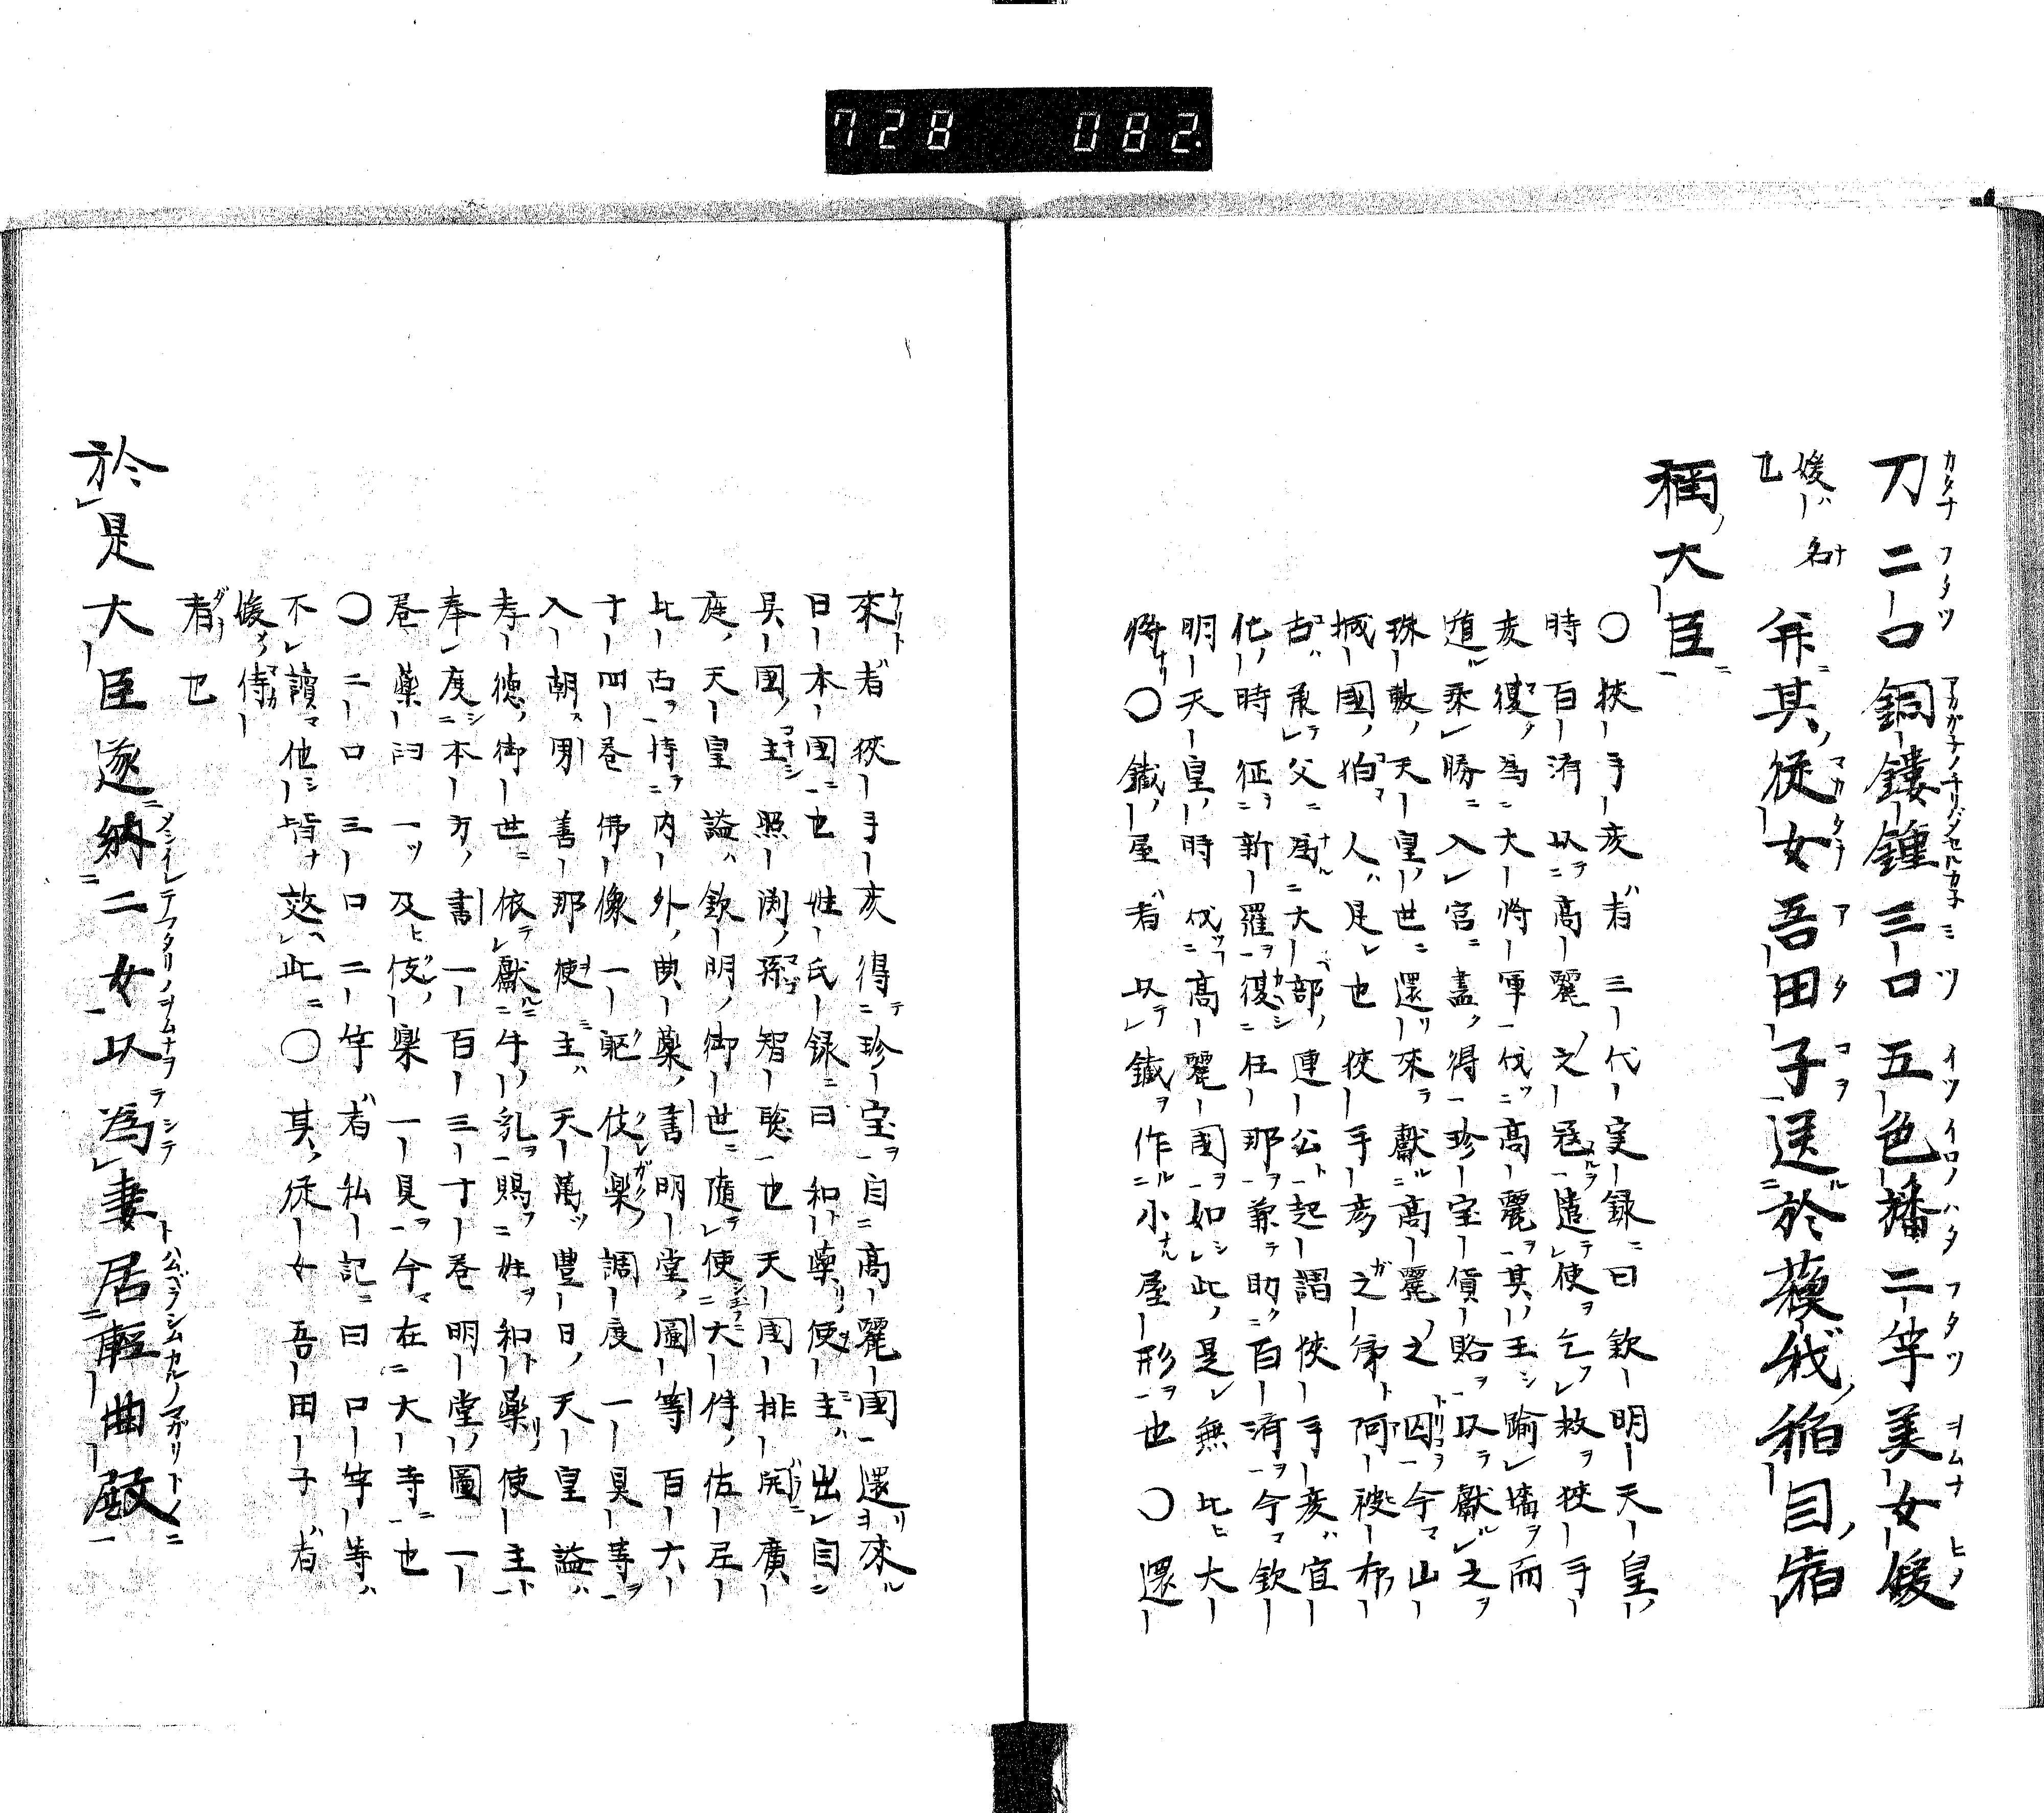 728 082
刀二口銅鏤鍾三口五色幡二竿美女媛
媛ハ名
也
并其従女吾田子送於蘓我稲目宿
祢大臣
〇狭手彦者三代実録曰欽明天皇
時百済以高麗之寇遣使乞救狭手
彦復為大将軍伐高麗其王踰墻而
遁乗勝入宮盡得珍宝貨賂以献之
珠敷天皇世還来献高麗之囚今山
城國狛人是也狭手彦之弟阿被布
古承父為大部連公起謂狭手彦宣
化時征新羅復任那兼助百済今欽
明天皇時伐高麗國如此是無比大
将〇鐵屋者以鐵作小屋形也〇還
来者狭手彦得珍宝自高麗國還来
日本國也姓氏録曰和藥使主出自
呉國主照渕孫智聡也天国排開廣
庭天皇謚欽明御世随使大伴佐弖
比古持内外典藥書明堂圖等百六
十四巻佛像一躯伎樂調度一具等
入朝男善那使主天萬豊日天皇謚
孝徳御世依献牛乳賜姓和藥使主
奉度本方書一百三十巻明堂圖一
巻藥臼一及伎樂一具今在大寺也
〇二口三口二竿者私記曰口竿等
不讀他皆效此〇其従女吾田子者
媛侍
者也
於是大臣遂納二女以為妻居軽曲殿